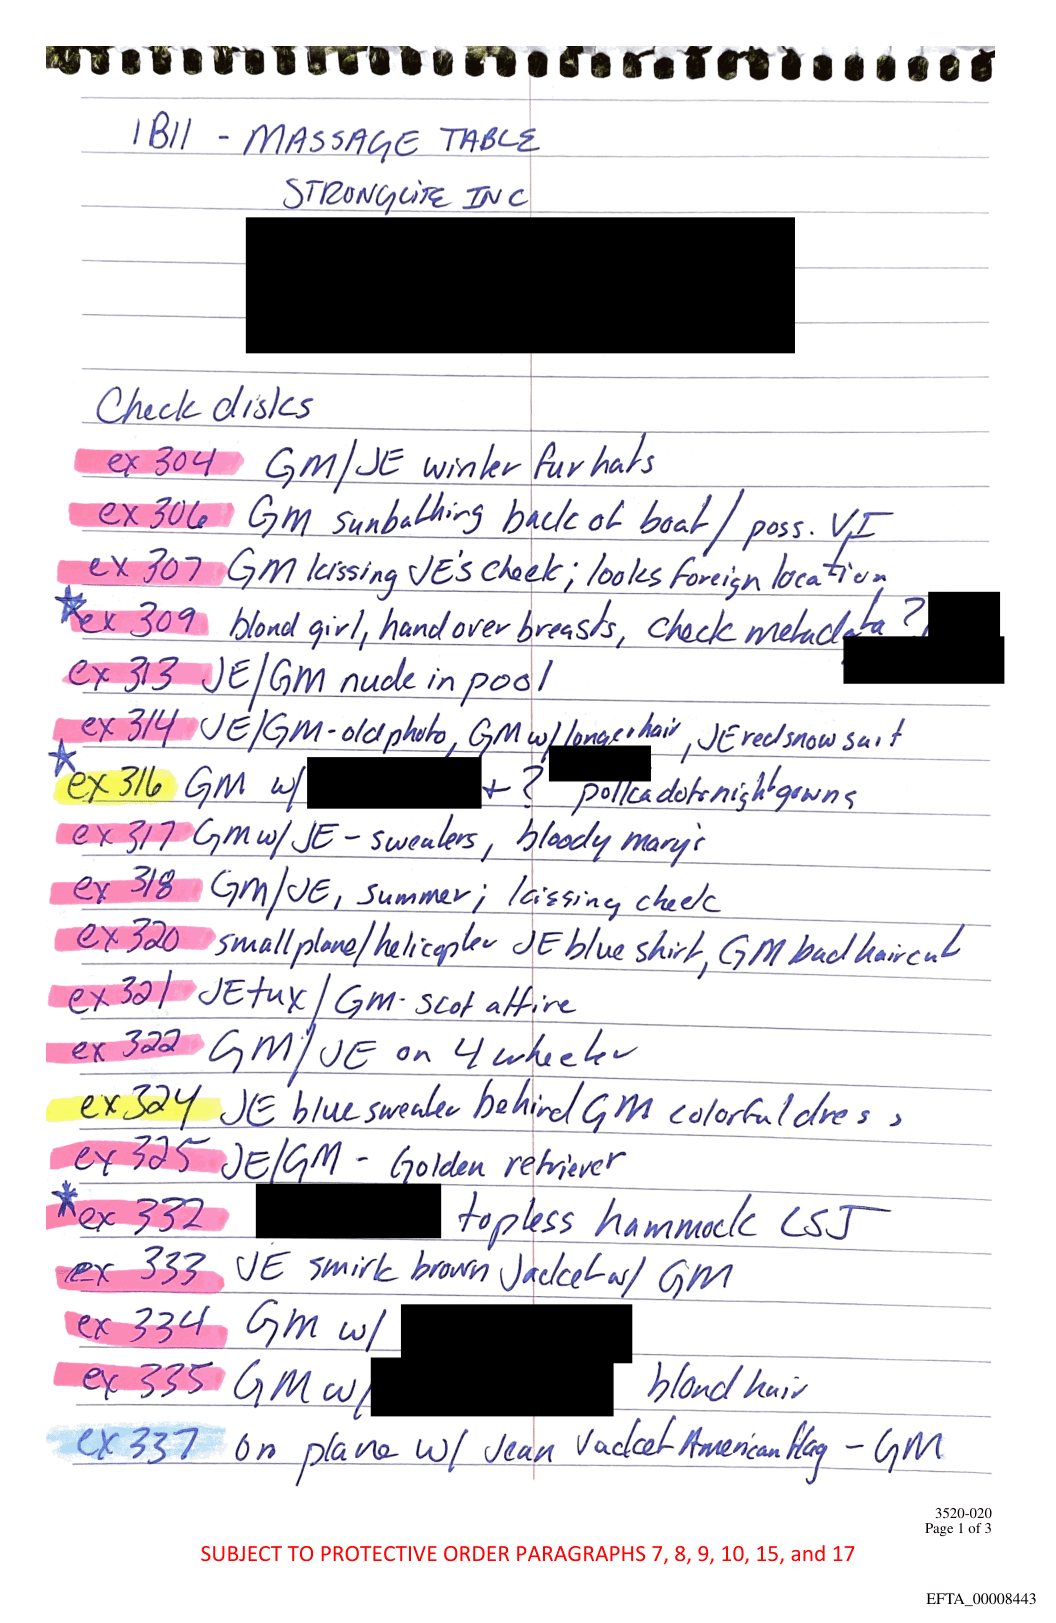 1B11 - MASSAGE TABLE
STRONGLITE INC
Check disks
ex 304 GM/JE winter fur hats
ex 306 GM sunbathing back of boat / poss. VI
ex 307 GM kissing JE's cheek; looks foreign location
ex 309 blond girl, hand over breasts, check metadata?
ex 313 JE/GM nude in pool
ex 314 JE/GM - old photo, GM w/ longer hair, JE red snow suit
ex 316 GM w/ + ? polkadots nightgowns
ex 317 GM w/ JE - sweaters, bloody mary's
ex 318 GM/JE, summer; kissing cheek
ex 320 small plane/helicopter JE blue shirt, GM bad haircut
ex 321 JE tux / GM - scot attire
ex 322 GM/JE on 4 wheeler
ex 324 JE blue sweater behind GM colorful dress
ex 325 JE/GM - Golden retriever
ex 332 topless hammock LSJ
ex 333 JE smirk brown Jacket w/ GM
ex 334 GM w/
ex 335 GM w/ blond hair
ex 337 on plane w/ Jean Jacket American flag - GM
3520-020
Page 1 of 3
SUBJECT TO PROTECTIVE ORDER PARAGRAPHS 7, 8, 9, 10, 15, and 17
EFTA_00008443